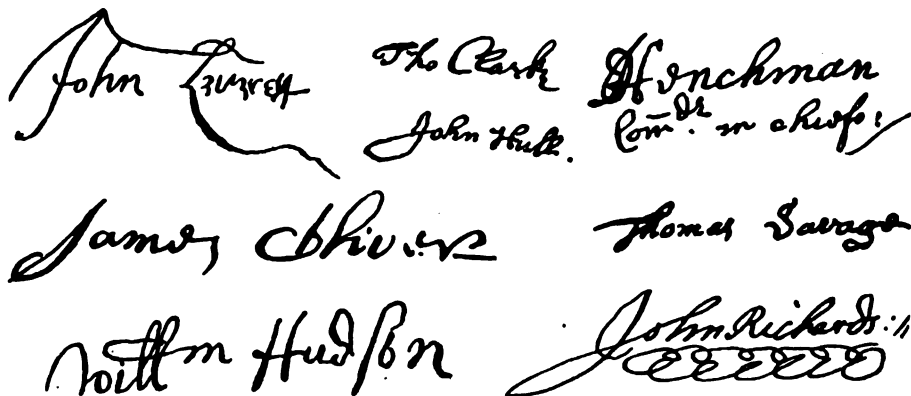 John Leverett
Tho Clarke
DHenchman
Com̄dr. in cheife:
John Hull.
James Oliver
Thomas Savage
Willm Hudson
John Richards://